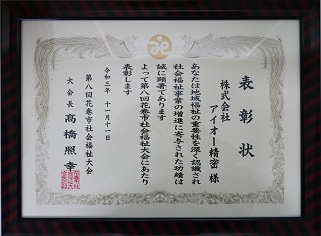 表彰状
株式会社
アイオー精密 様
あなたは地域福祉の重要性を深く認識され
社会福祉事業の増進に寄与された功績は
誠に顕著であります
よって第八回花巻市社会福祉大会にあたり
表彰します
令和三年 十一月十一日
第八回花巻市社会福祉大会
大会長 高橋照幸